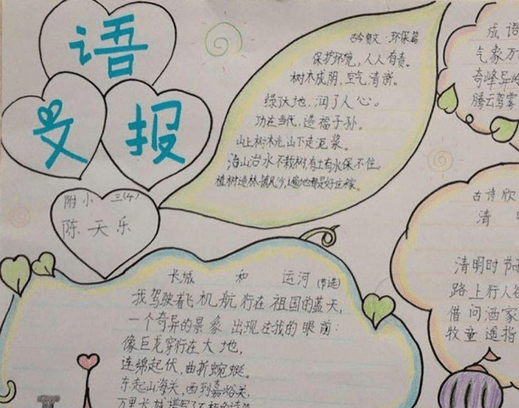 语
文
报
附小 三(4)
陈天乐
环保篇
保护环境，人人有责。
树木成阴，空气清新。
绿沃地，润了人心。
功在当代，造福子孙。
山上树木光，山下走泥浆。
治水不栽树，有土有水保不住。
植树造林
长城 和 运河(节选)
我驾驶着飞机航行在祖国的蓝天，
一个奇异的景象 出现在我的眼前：
像巨龙穿行在大地，
连绵起伏，曲折蜿蜒。
东起山海关，西到嘉峪关，
万里长城
成语
气象万
奇峰异
腾云驾雾
古诗欣
清
清明时节雨
路上行人
借问酒家
牧童遥指